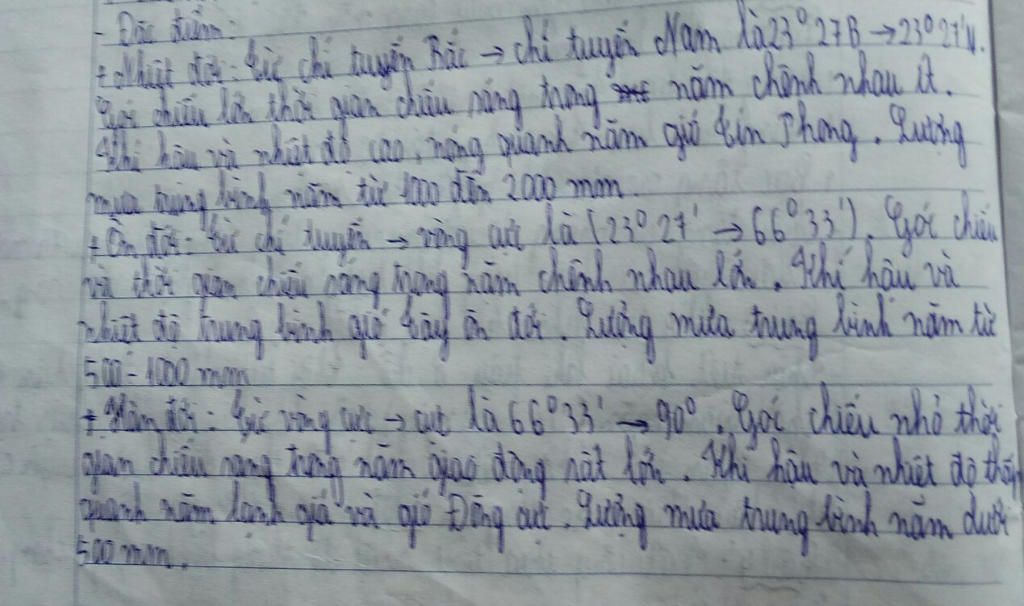 - Đặc điểm:
+ Nhiệt đới: từ chí tuyến Bắc → chí tuyến Nam là 23⁰27B → 23⁰27'N.
Góc chiếu lớn thời gian chiếu sáng trong năm chênh nhau ít.
Khí hậu và nhiệt độ cao, nóng quanh năm gió Tín Phong. Lượng
mưa trung bình năm từ 1000 đến 2000 mm
+ Ôn đới: từ chí tuyến → vòng cực là (23⁰27' → 66⁰33'). Góc chiếu
và thời gian chiếu sáng trong năm chênh nhau lớn. Khí hậu và
nhiệt độ trung bình gió tây ôn đới. Lượng mưa trung bình năm từ
500 - 1000 mm
+ Hàn đới: từ vòng cực → cực là 66⁰33' → 90⁰. Góc chiếu nhỏ thời
gian chiếu sang trong năm giao động rất lớn. Khí hậu và nhiệt độ thấp
quanh năm lạnh giá và gió Đông cực. Lượng mưa trung bình năm dưới
500 mm.